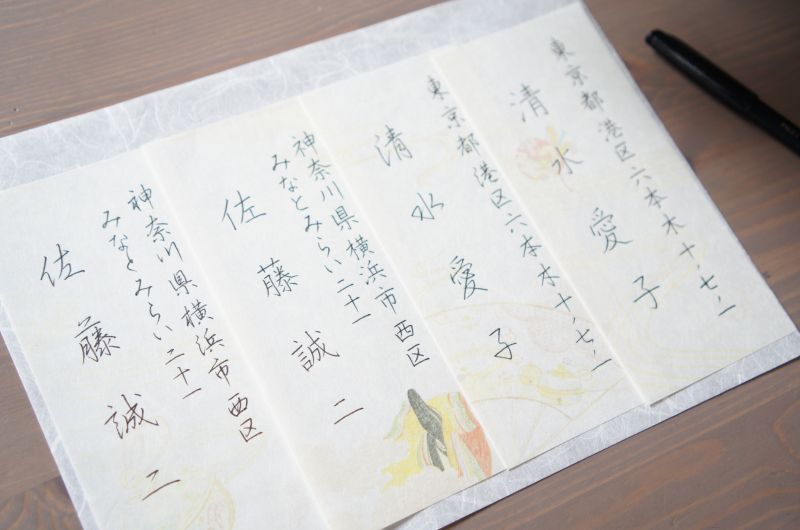 東京都港区六本木十、七、一
清水愛子
東京都港区六本木十、七、一
清水愛子
神奈川県横浜市西区
みなとみらい二十一
佐藤誠二
神奈川県横浜市西区
みなとみらい二十一
佐藤誠二